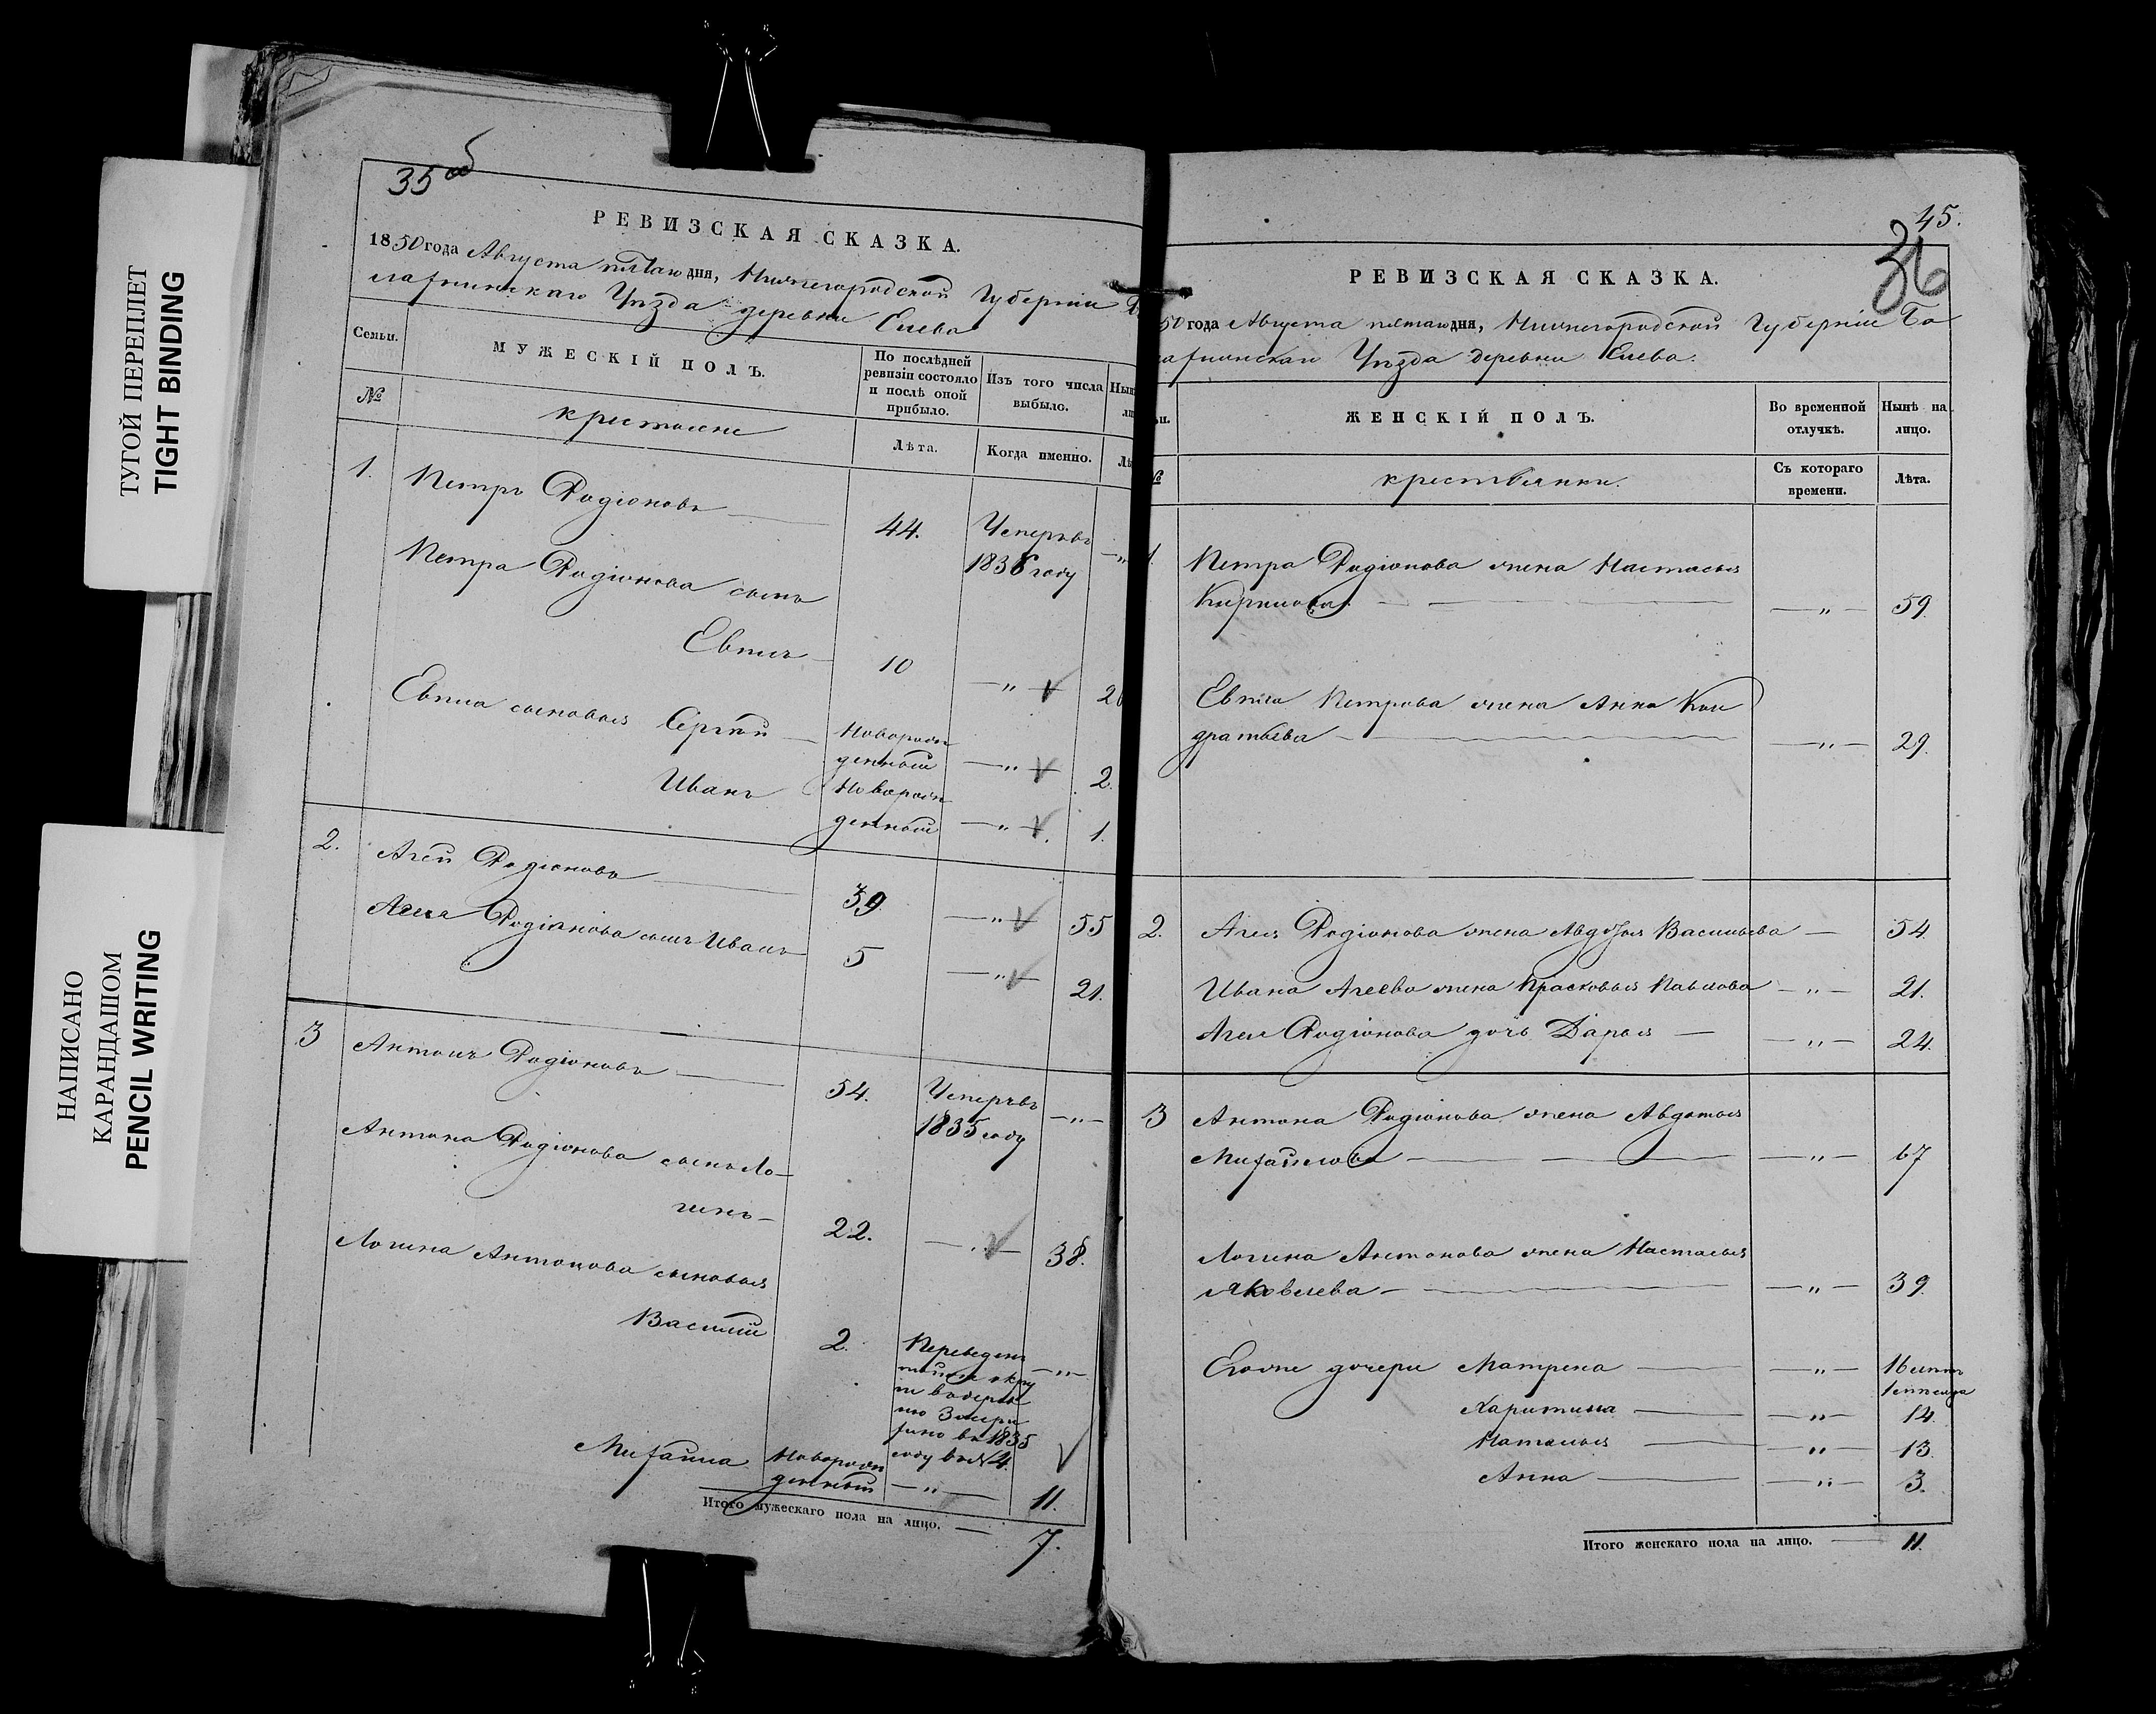 ТУГОЙ ПЕРЕПЛЕТ
TIGHT BINDING
НАПИСАНО
КАРАНДАШОМ
PENCIL WRITING
35 об
РЕВИЗСКАЯ СКАЗКА.
1850 года Августа пятаго дня, Нижегородской Губерніи
Уѣзда деревни Елева
Семьи.
МУЖЕСКІЙ ПОЛЪ.
По послѣдней
ревизіи состояло
и послѣ оной
прибыло.
Изъ того числа
выбыло.
№
крестьяне
Лѣта.
Когда именно.
1.
Петръ Родіоновъ
44.
Умеръ въ
1836 году
Петра Родіонова сынъ
Евпла
10
Евпла сыновья Сергѣй
Новорож
денный
2.
Иванъ
Новорож
денный
1.
2.
Агей Родіоновъ
39
55
Агея Родіонова сынъ Иванъ
5
21.
3
Антонъ Родіоновъ
54.
Умеръ въ
1835 году
Антона Родіонова сынъ Ло
гинъ
22.
38.
Логина Антонова сыновья
Василій
2.
Переведенъ
въ 1835
году въ № 4.
Михайла
Новорож
денный
11.
Итого мужескаго пола на лицо.
7.
45.
36
РЕВИЗСКАЯ СКАЗКА.
50 года Августа пятаго дня, Нижегородской Губерніи Ба
Уѣзда деревни Елева.
ЖЕНСКІЙ ПОЛЪ.
Во временной
отлучкѣ.
Нынѣ на
лицо.
крестьянки.
Съ котораго
времени.
Лѣта.
1.
Петра Родіонова жена Настасья
Кирилова
59.
Евпла Петрова жена Анна Кон
дратьева
29.
2.
Агея Родіонова жена Авдотья Васильева
54.
Ивана Агеева жена Прасковья Павлова
21.
Агея Родіонова дочь Дарья
24.
3
Антона Родіонова жена Авдотья
Михайлова
67
Логина Антонова жена Настасья
Яковлева
39.
Еговые дочери Матрена
16
Харитина
14.
Наталья
13.
Анна
3.
Итого женскаго пола на лицо.
11.